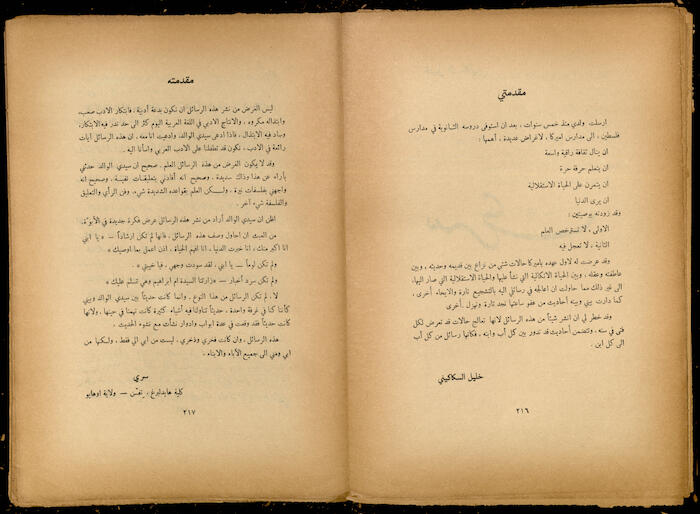 مقدمتي
ارسلت ولدي منذ خمس سنوات، بعد ان استوفى دروسه الثانوية في مدارس
فلسطين، الى مدارس اميركا، لاغراض عديدة، أهمها:
ان ينال ثقافة راقية واسعة
ان يتعلم حرفة حرة
ان يتمرن على الحياة الاستقلالية
ان يرى الدنيا
وقد زودته بوصيتين:
الاولى، لا تسترخص العلم
الثانية، لا تعجل فيه
وقد عرضت له لاول عهده باميركا حالات شتى من نزاع بين قديمه وحديثه، وبين
عاطفته وعقله، وبين الحياة الاتكالية التي نشأ عليها والحياة الاستقلالية التي صار اليها،
الى غير ذلك مما حاولت ان اعالجه في رسائلي اليه بالتشجيع تارة والايحاء أخرى،
كما دارت بيني وبينه أحاديث من عفو ساعتها نجد تارة ونهزل أخرى
وقد خطر لي ان انشر شيئاً من هذه الرسائل لانها تعالج حالات قد تعرض لكل
فتى في سنه، وتتضمن أحاديث قد تدور بين كل أب وابنه، فكأنها رسائل من كل أب
الى كل ابن.
خليل السكاكيني
٢١٦
مقدمته
ليس الغرض من نشر هذه الرسائل ان تكون بدعة أدبية، فابتكار الادب صعب،
وابتذاله مكروه، والانتاج الادبي في اللغة العربية اليوم كثر الى حد ندر فيه الابتكار،
وساد فيه الابتذال، فاذا ادعى سيدي الوالد، وادعيت انا معه، ان هذه الرسائل آيات
رائعة في الادب، نكون قد تطفلنا على الادب العربي وأسأنا اليه.
وقد لا يكون الغرض من هذه الرسائل العلم. صحيح ان سيدي الوالد حدثني
بآراء عن هذا وذاك سديدة، وصحيح انه أفادني بتعليقات نفيسة، وصحيح انه
واجهني بفلسفات نيرة، ولكن العلم بقواعده الشديدة شيء، وفن الرأي والتعليق
والفلسفة شيء آخر.
اظن ان سيدي الوالد أراد من نشر هذه الرسائل عرض فكرة جديدة في الأبوة.
من العبث ان احاول وصف هذه الرسائل، فانها لم تكن ارشاداً — « يا ابني
انا اكبر منك، انا خبرت الدنيا، انا افهم الحياة، اذن اعمل بما اوصيك »
ولم تكن لوماً — يا ابني، لقد سودت وجهي، فيا خيبتي »
ولم تكن سرد أخبار — « زارتنا السيدة ام ابراهيم وهي تسلم عليك »
لا، لم تكن الرسائل من هذا النوع، وانما كانت حديثاً بين سيدي الوالد وبيني
كأننا كنا في غرفة واحدة، حديثاً تناولنا فيه أشياء كثيرة كانت تهمنا في حينها، ولانها
كانت حديثاً فقد وقعت في عدة ابواب وادوار نشأت مع نشوء الحديث.
هذه الرسائل، وان كانت فخري وذخري، ليست من أبي الي فقط، ولكنها من
أبي وغني الى جميع الآباء والابناء.
سري
كلية هايدلبرغ، تفتن — ولاية اوهايو
٢١٧